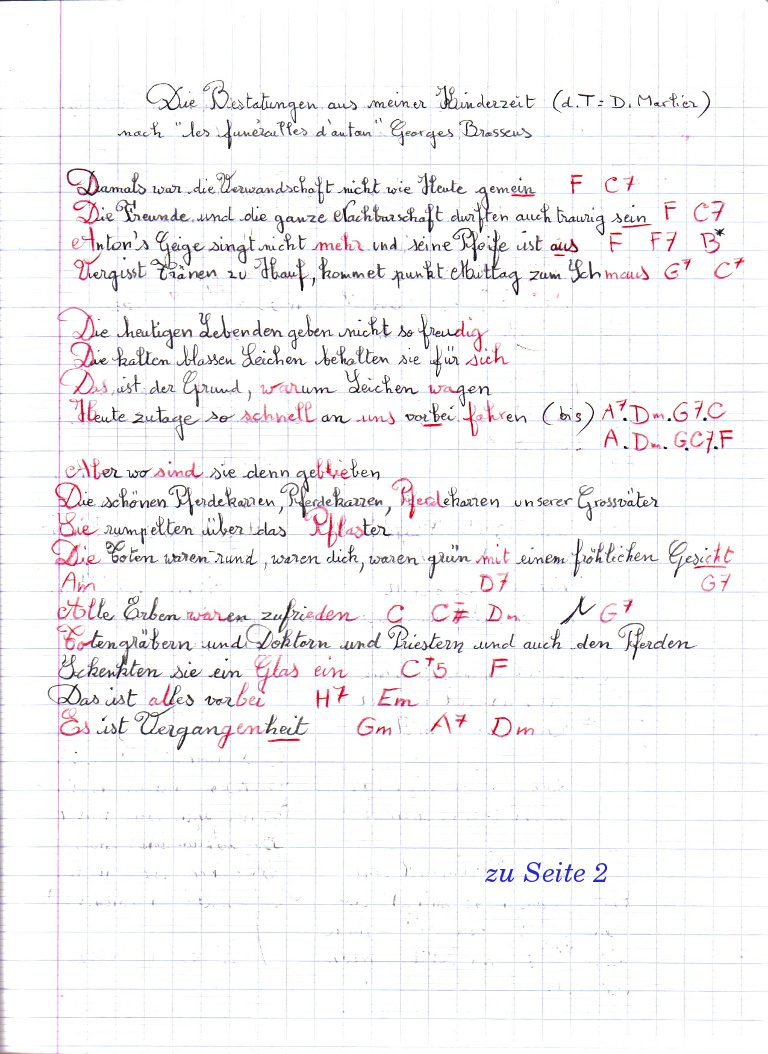 Die Bestatungen aus meiner Kinderzeit (d.T = D. Martier)
nach "les funérailles d'antan" Georges Brassens
Damals war die Verwandschaft nicht wie Heute gemein F C7
Die Freunde und die ganze Nachbarschaft durften auch traurig sein F C7
Anton's Geige singt nicht mehr und seine Pfeife ist aus F F7 B*
Vergisst Tränen zu Hauf, kommet punkt Mittag zum Schmaus G7 C7
Die heutigen Lebenden geben nicht so freudig
Die kalten blassen Leichen behalten sie für sich
Das ist der Grund, warum Leichen wagen
Heute zutage so schnell an uns vorbei fahren (bis) A7.Dm.G7.C
A.Dm.G.C7.F
Aber wo sind sie denn geblieben
Die schönen Pferdekarren, Pferdekarren, Pferdekarren unserer Grossväter
Sie rumpelten über das Pflaster
Die Toten waren rund, waren dick, waren grün mit einem fröhlichen Gesicht
Am D7 G7
Alle Erben waren zufrieden C C# Dm N G7
Totengräbern und Doktorn und Priestern und auch den Pferden
Schenkten sie ein Glas ein C+5 F
Das ist alles vorbei H7 Em
Es ist Vergangenheit Gm A7 Dm
zu Seite 2